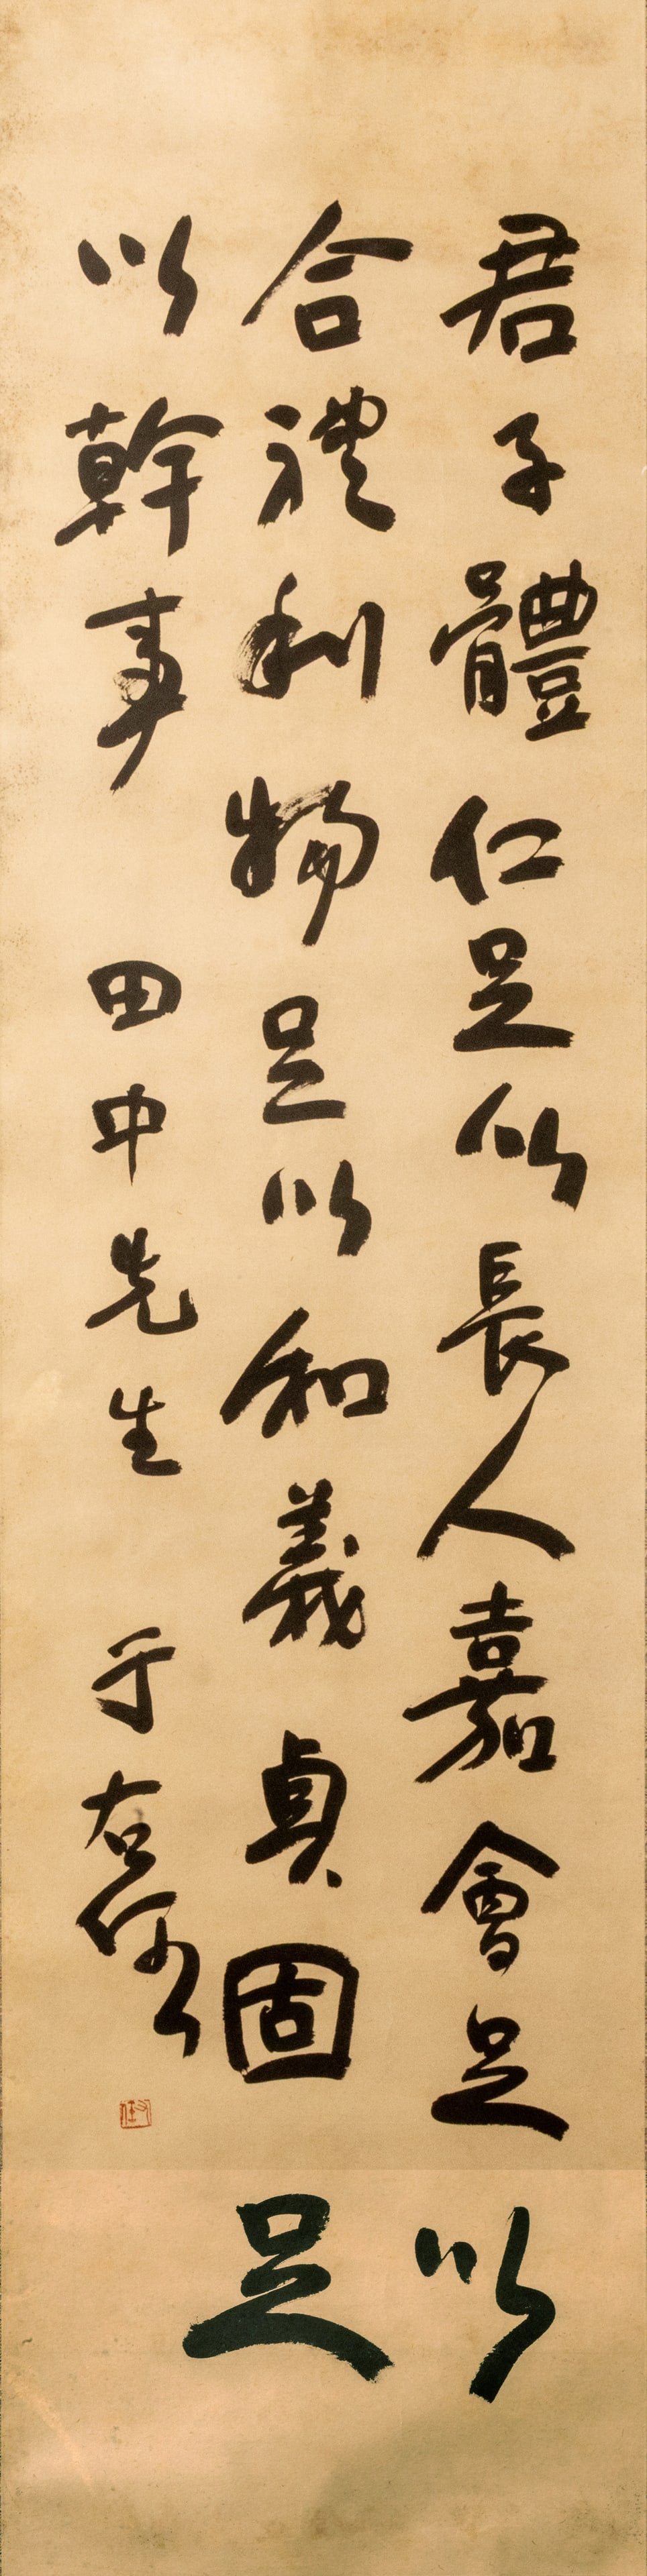 君子體仁足以長人嘉會足以
合禮利物足以和義貞固足
以幹事 田中先生 于右任